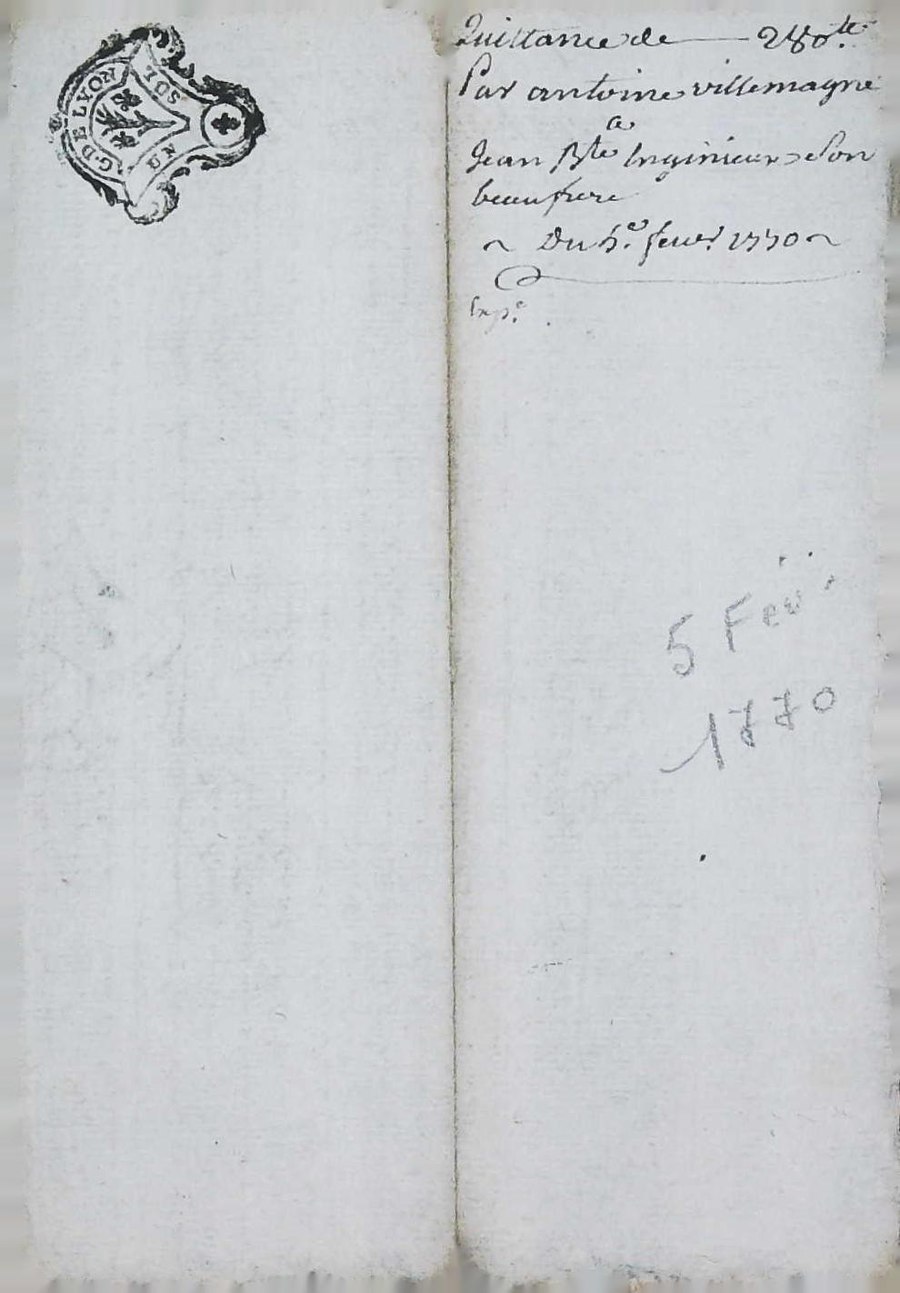 G. DE LYON
UN SOL
Quittance de — 280ll.
Par antoine villemagne
a
Jean Bte Inginieur Son
beaufrere
~ Du 5e. fevr. 1770 ~
Expe.
5 Fev.
1770